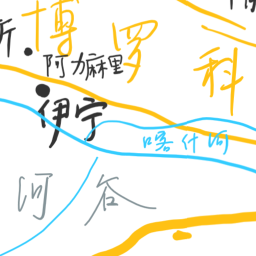 博罗科
阿力麻里
伊宁
喀什河
河谷